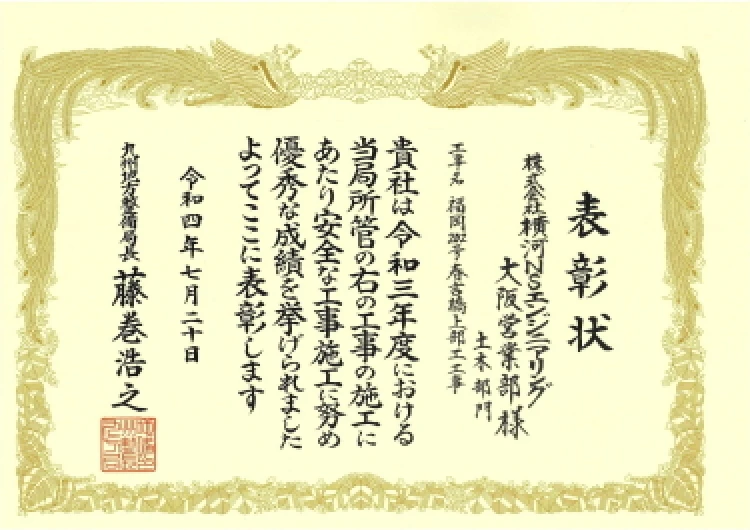 表彰状
株式会社横河NSエンジニアリング
大阪営業部 様
土木部門
工事名 福岡202号春吉橋上部工工事
貴社は令和三年度における
当局所管の右の工事の施工に
あたり安全な工事施工に努め
優秀な成績を挙げられました
よってここに表彰します
令和四年七月二十日
九州地方整備局長 藤巻浩之